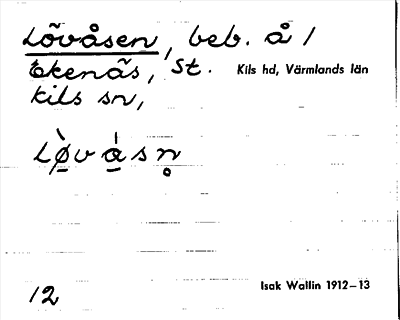 Lövåsen, beb. å /
Ekenäs, St. Kils hd, Värmlands län
Kils sn,
Lø̠̀vá̠sn̥
12
Isak Wallin 1912–13